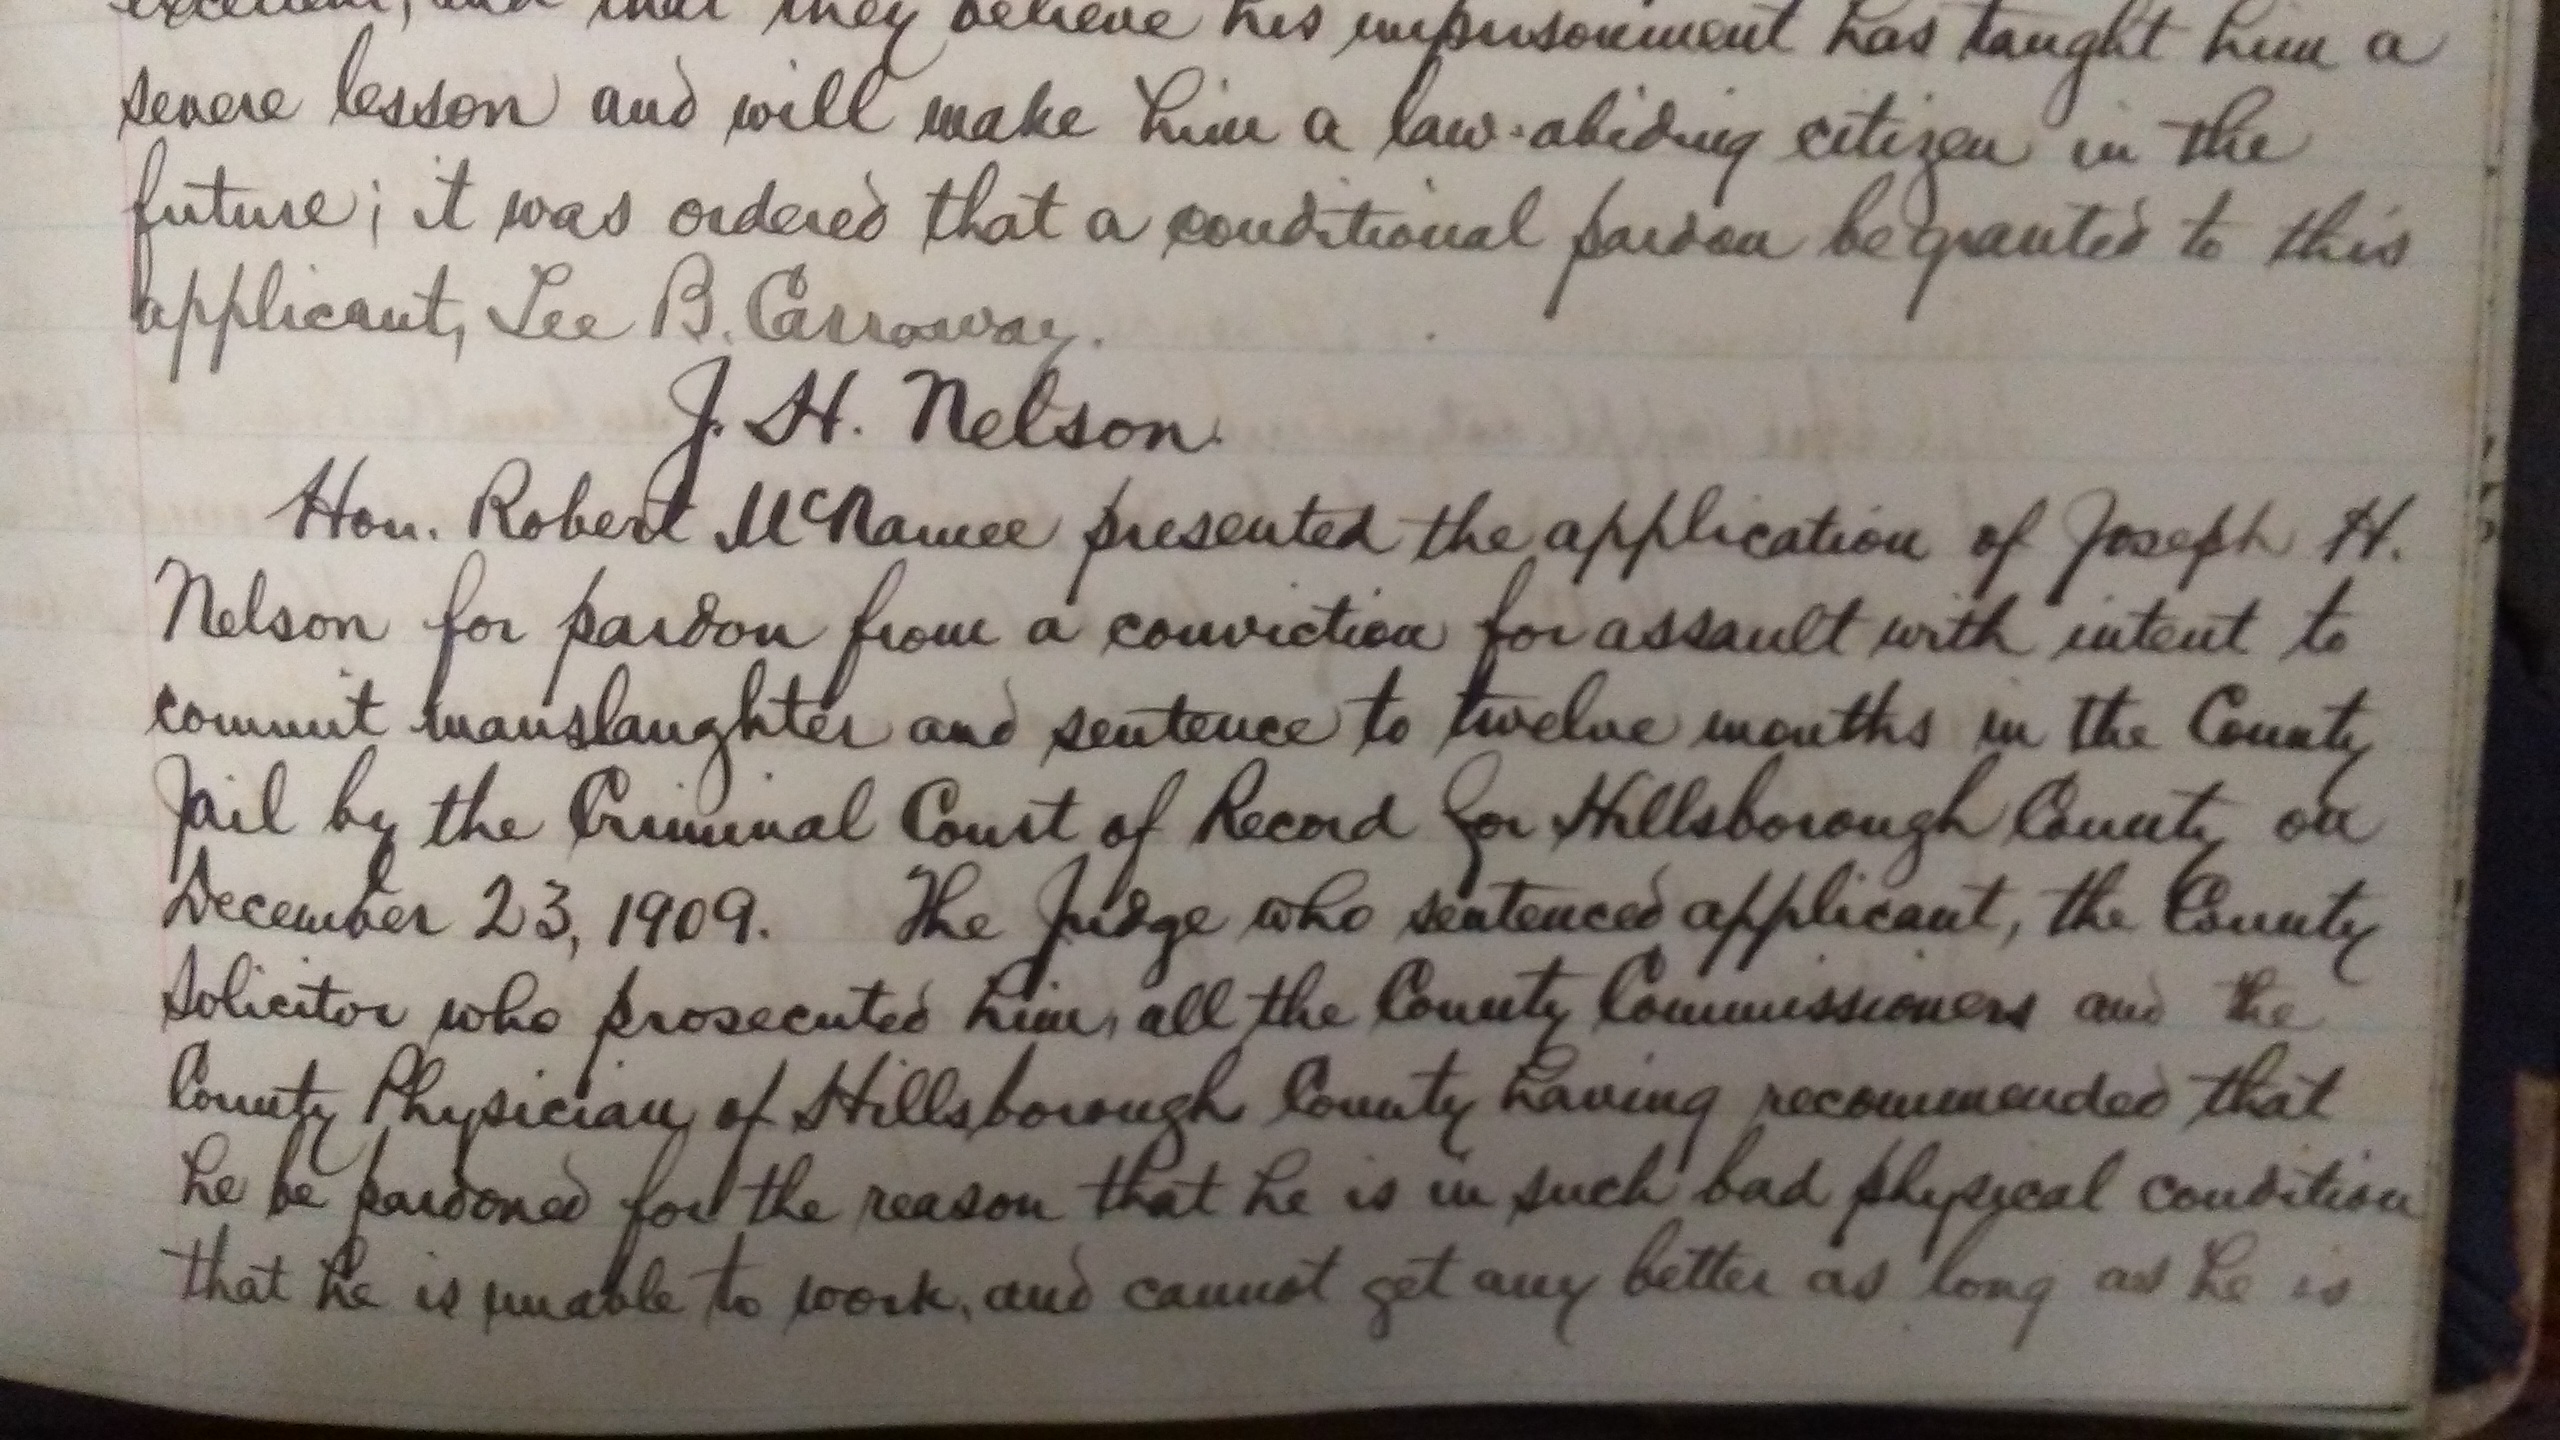 excellent, and that they believe his imprisonment has taught him a
severe lesson and will make him a law-abiding citizen in the
future; it was ordered that a conditional pardon be granted to this
applicant, Lee B. Carroway.
J. H. Nelson.
Hon. Robert McNamee presented the application of Joseph H.
Nelson for pardon from a conviction for assault with intent to
commit manslaughter and sentence to twelve months in the County
jail by the Criminal Court of Record for Hillsborough County on
December 23, 1909. The judge who sentenced applicant, the County
solicitor who prosecuted him, all the County Commissioners and the
County Physician of Hillsborough County having recommended that
he be pardoned for the reason that he is in such bad physical condition
that he is unable to work, and cannot get any better as long as he is